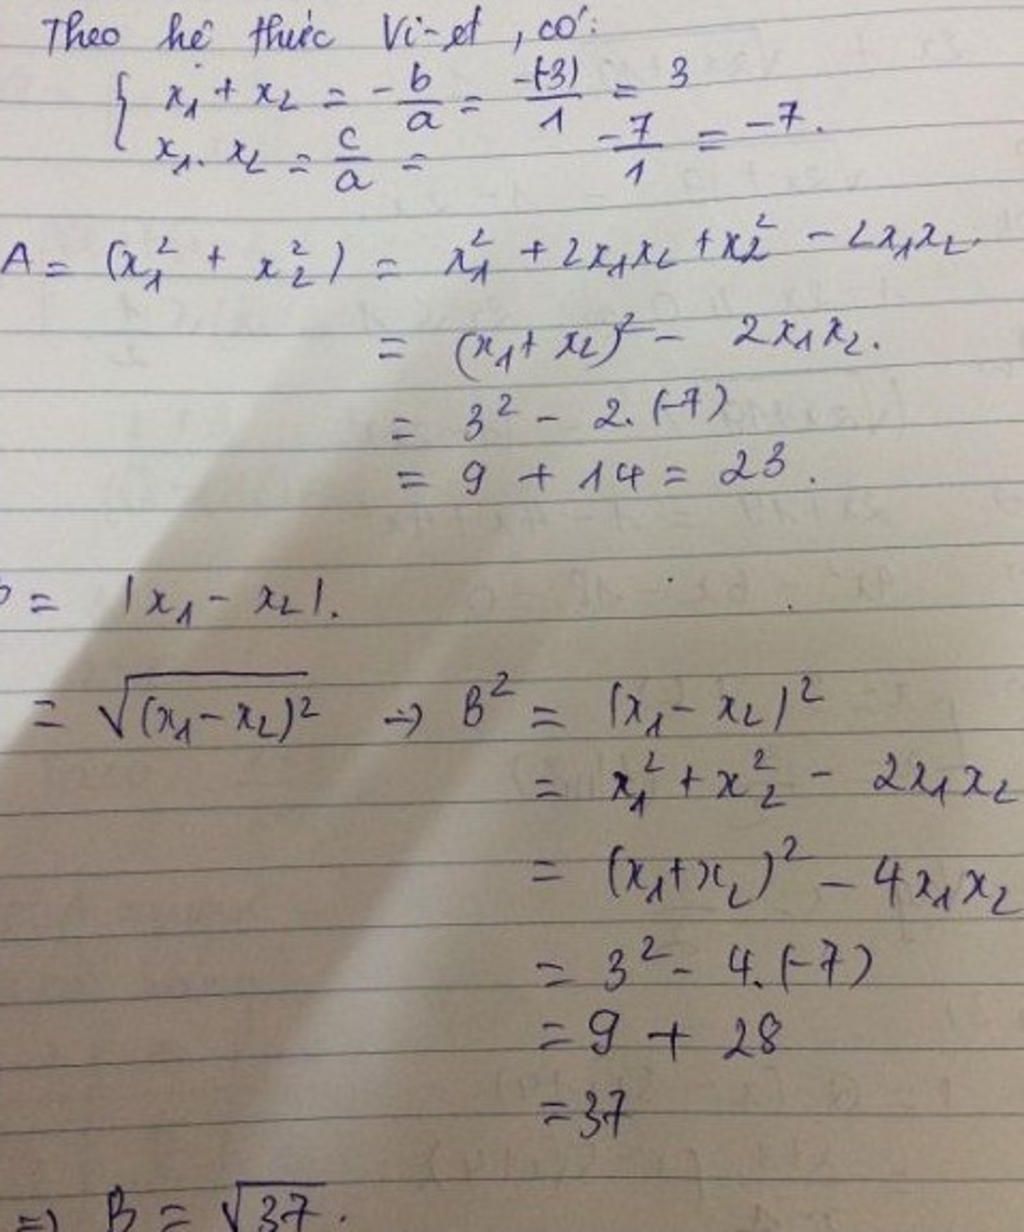 Theo hệ thức Vi-et, có:
{ x₁ + x₂ = -b/a = -(-3)/1 = 3
x₁. x₂ = c/a = -7/1 = -7.
A = (x₁² + x₂²) = x₁² + 2x₁x₂ + x₂² - 2x₁x₂.
= (x₁ + x₂)² - 2x₁x₂.
= 3² - 2.(-7)
= 9 + 14 = 23.
= |x₁ - x₂|.
= √(x₁ - x₂)² → B² = (x₁ - x₂)²
= x₁² + x₂² - 2x₁x₂
= (x₁+x₂)² - 4x₁x₂
= 3² - 4.(-7)
= 9 + 28
= 37
=> B = √37.